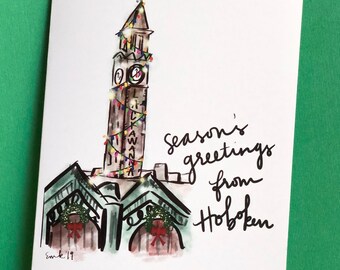 LACKAWANNA
season's
greetings
from
Hoboken
smk 19